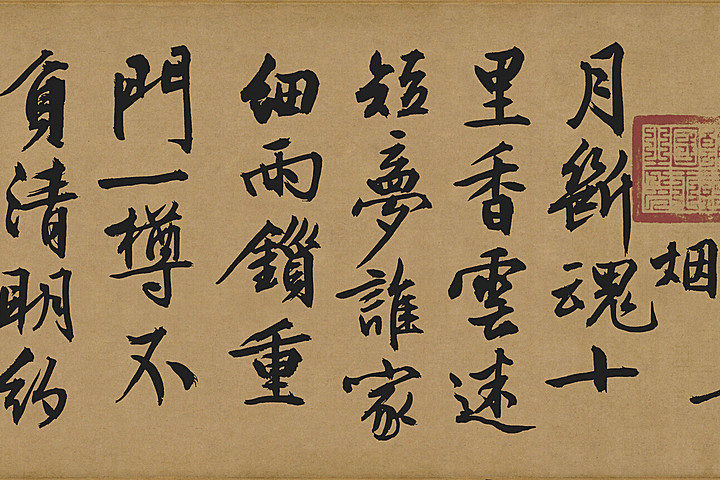 烟
月斷魂十
里香雲迷
短夢誰家
細雨鎖重
門一樽不
負清明約